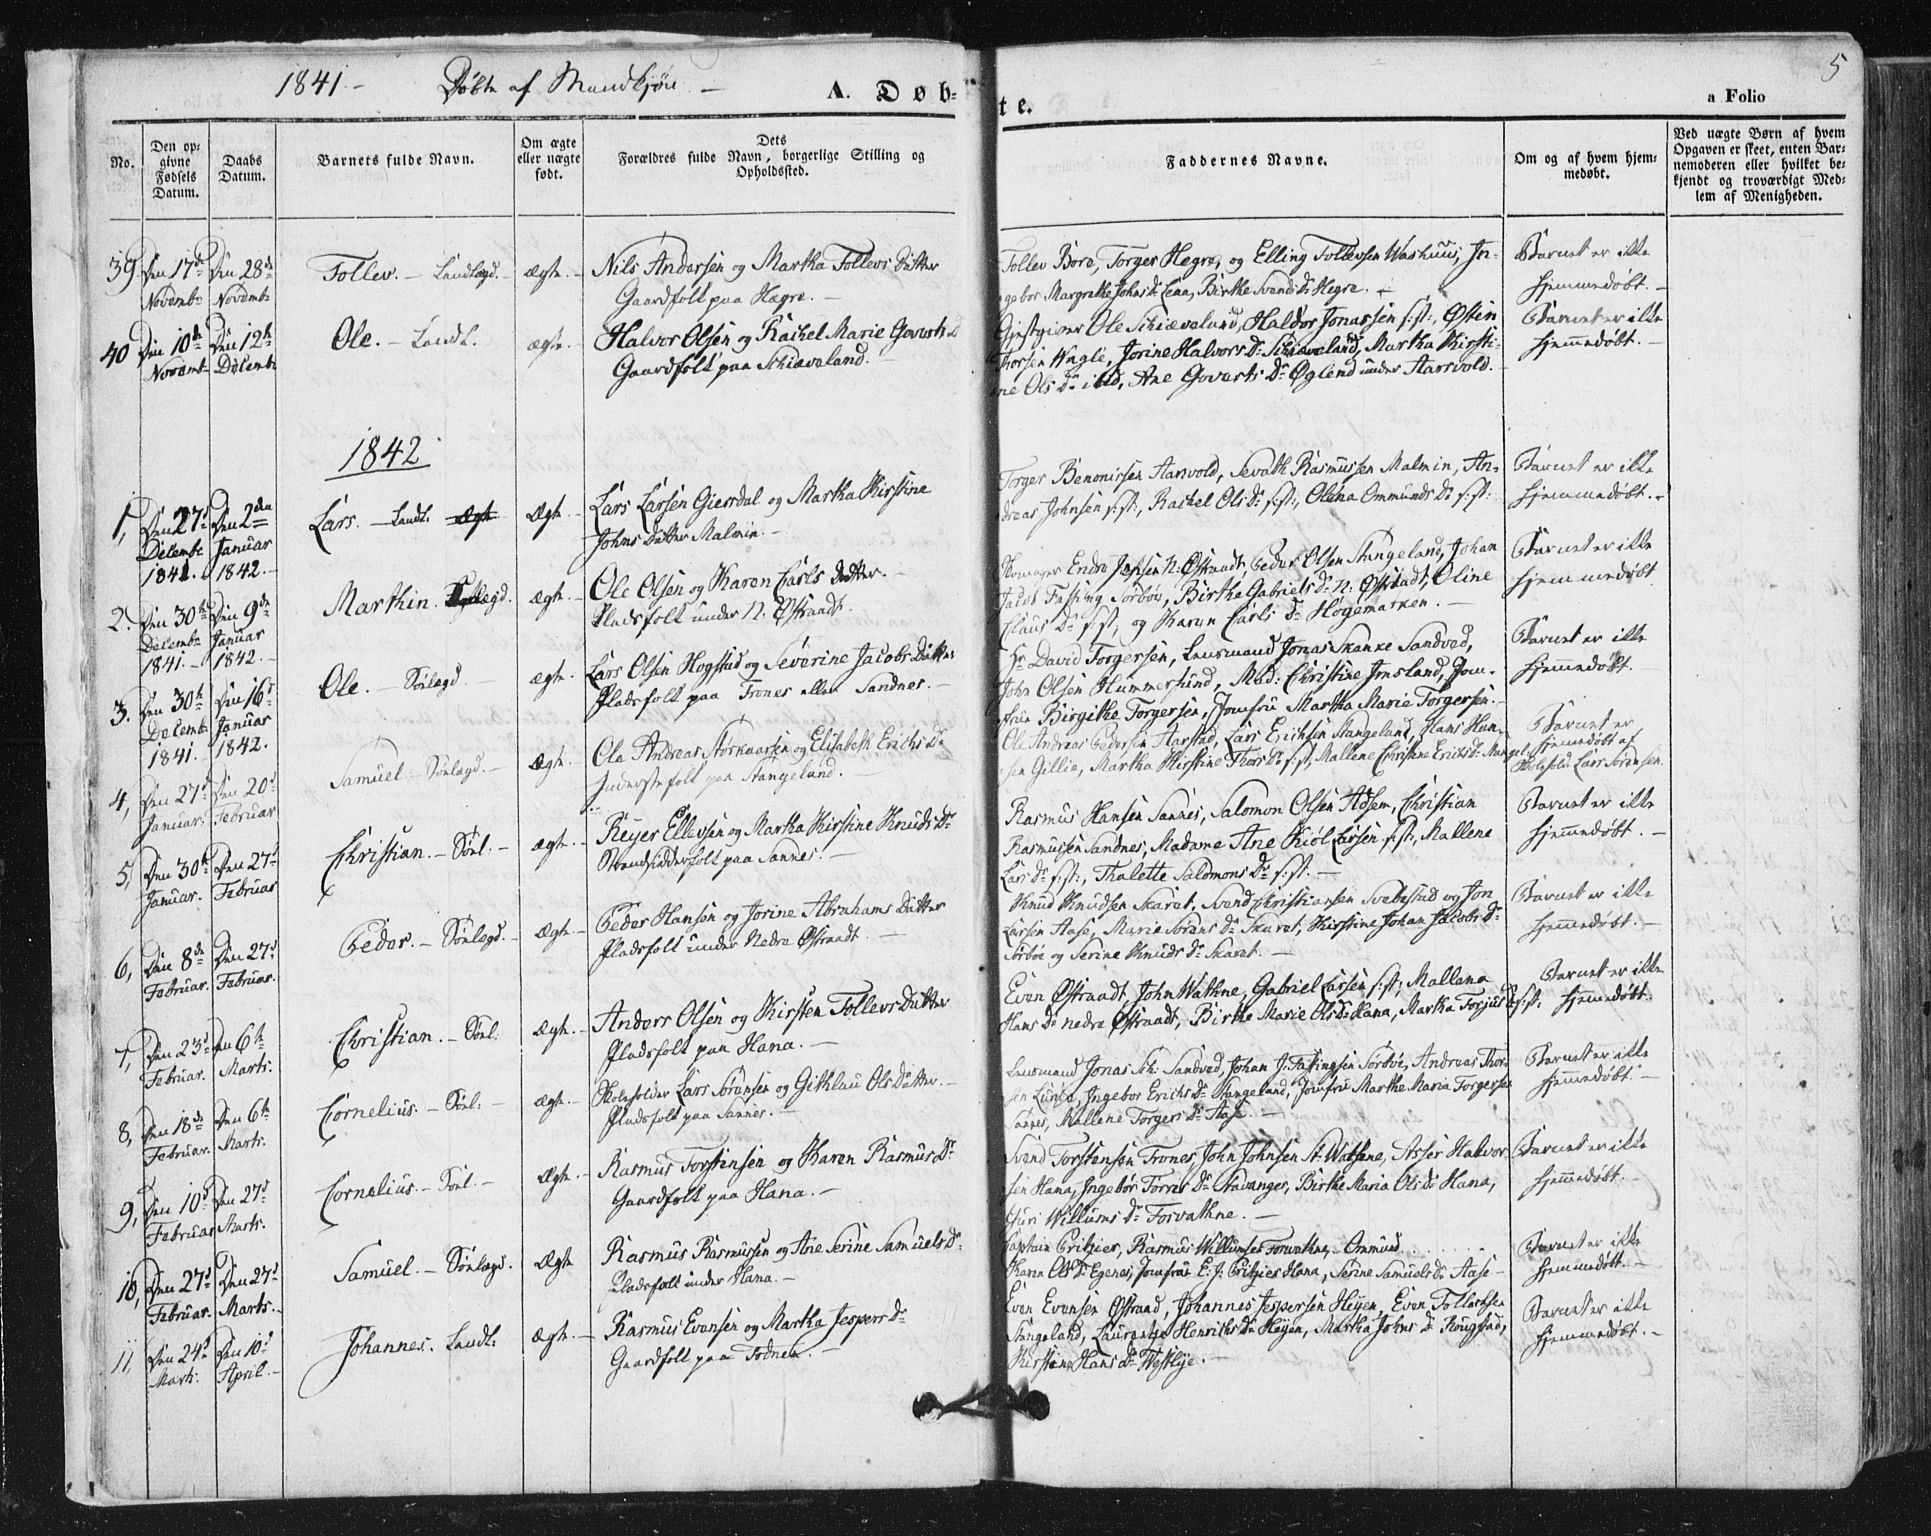 1841.– Døbte af Mandkjøn –
A. Døb-
te.
5
a Folio
No.
Den op-
givne
Fødsels
Datum.
Daabs
Datum.
Barnets fulde Navn.
Om ægte
eller uægte
født.
Dets
Forældres fulde Navn, borgerlige Stilling og
Opholdssted.
Faddernes Navne.
Om og af hvem hjem-
medøbt.
Ved uægte Børn af hvem
Opgaven er skeet, enten Bar-
nemoderen eller hvilket be-
kjendt og troværdigt Med-
lem af Menigheden.
39 Den 17de Novembr Den 28de Novembr
Tollev. – Landlægd. – ægte. –
Nils Andersen og Martha Tollevs Datter
Gaardfolk paa Hegre. –
Tollev Bore, Torger Hegre, og Elling Tollevsen Washuus, In-
gebor Margrethe Johns Dr Lena, Birthe Svends Dr Hegre. –
Barnet er ikke
hjemmedøbt. –
40 Den 10de Novembr Den 12te Decembr
Ole. – Landl. ægte. –
Halvor Olsen og Rachel Marie Goverts D
Gaardfolk paa Schiæveland. –
Gjestgiver Ole Schiæveland, Haldor Jonassen s: st:, Østen
Thorsen Wagle, Jorine Halvors Dr Schiæveland, Martha Kirsti-
ne Ols Dr ibid, Ane Goverts Dr Øglend under Aarsvold.
Barnet er ikke
hjemmedøbt. –
1842
1, Den 27de Decembr 1841. Den 2den Januar 1842. –
Lars. – Landl: Ægte Ægte –
Lars Larsen Giesdal og Martha Kirstine
Johns Datter Malmin. –
Torger Benonisen Aarsvold, Sevath Rasmussen Malmin, An-
dreas Johnsen s: st:, Rachel Ols Dr s: st:, Olena Ommunds Dr s: st:
Barnet er ikke
hjemmedøbt. –
2. Den 30te Decembr 1841. – Den 9de Januar 1842. –
Marthin. lægd. ægte. –
Ole Olsen og Karen Carls Datter. –
Pladsfolk under N. Østraadt
Endre Jensen N: Østraadt, Peder Olsen Stangeland, Johan
Jacob Fasting Sørboe, Birtha Gabriels Dr N: Østraadt, Oline
Claus Dr s: st, og Karen Carls Dr Høgemarken. –
Barnet er ikke
hjemmedøbt
3. Den 30te Decembr 1841. Den 16de Januar 1842.
Ole. – Sølægd. ægte. –
Lars Olsen Hogstad og Severine Jacobs Datter
Pladsfolk paa Trones eller Sandnes. –
Hr David Torgersen, Lensmand Jonas Skanke Sandved,
John Olsen Hummersund, Mad: Christine Imsland, Jom-
fru Birgithe Torgersen, Jomfru Martha Marie Torgersen. –
Barnet er ikke
hjemmedøbt.
4, Den 27de Januar. Den 20de Februar
Samuel. – Sølægd. – Ægte. –
Ole Andreas Størkaarsen og Elisabeth Erichs Dr
Inderstefolk paa Stangeland. –
Ole Andreas Pedersen Aarstad, Lars Erichsen Stangeland, Hans Han-
sen Gillie, Martha Kirstine Thors Dr s: st, Mallene Christine Erichs Dr Stangel
Barnet er
hjemmedøbt af
Lars Sørensen.
5, Den 30te Januar. Den 27de Februar
Christian. – Søel. – ægte. –
Reyer Ellevsen og Martha Kirstine Knuds Dr
Strandsidderfolk paa Sannes. –
Rasmus Hansen Sannes, Salomon Olsen Adsem, Christian
Rasmussen Sandnes, Madame Ane Kiøl Larsen s: st:, Mallene
Lars Dr s: st:, Thalette Salomons Dr s: st:. –
Barnet er ikke
hjemmedøbt. –
6, Den 8de Februar. Den 27de Februar.
Peder. – Sølægd. – ægte. –
Peder Hansen og Jorine Abrahams Datter
Pladsfolk under Nedre Østraadt. –
Knud Knudsen Skaret, Svend Christiansen Svebestad og Jon
Larsen Aase, Marie Sørens Dr Skaret, Kirstine Johan Jacobs Dr
Sørboe og Serine Knuds Dr Skaret. –
Barnet er ikke
hjemmedøbt. –
7, Den 23de Februar. Den 6te Marts.
Christian. – Søel. Ægte. –
Anders Olsen og Kirsten Tollevs Datter
Pladsfolk paa Hana. –
Even Østraadt, John Wathne, Gabriel Larsen s: st:, Mallena
Hans Dr nedre Østraadt, Birthe Marie Ols Dr Hana, Martha Torjus Dr s: st.
Barnet er ikke
hjemmedøbt.
8, Den 18de Februar. Den 6te Marts.
Cornelius. – Søel: – ægte. –
Lars Sørensen og Githlau Ols Datter. –
Pladsfolk paa Sannes. –
Lensmand Jonas Sk: Sandved, Johan J: Fastingsen Sørboe, Andreas Thor-
sen Lunde, Ingebor Erichs Dr Stangeland, Jomfru Marthe Marie Torgersen
Sannes, Mallene Torgers Dr Aase. –
Barnet er ikke
hjemmedøbt. –
9, Den 10de Februar Den 27de Marts.
Cornelius. – Søel. – Ægte. –
Rasmus Torstensen og Karen Rasmus Dr
Gaardfolk paa Hana. –
Svend Torstensen Trones, John Johnsen St: Wathne, Asser Halvor-
sen Hana, Ingebor Torres Dr Stavanger, Birthe Maria Ols Dr Hana,
Guri Willums Dr Forvathne. –
Barnet er ikke
hjemmedøbt.
10, Den 27de Februar. Den 27de Marts. –
Samuel. – Sølægd. Ægte
Rasmus Rasmussen og Ane Serine Samuels Dr
Pladsfolk under Hana. –
Captain Critzier, Rasmus Willumsen Forvathne, Ommund
Karen Ols Dr Egenes, Jomfru E. J. Critzier Hana, Serine Samuels Dr Aase –
Barnet er ikke
hjemmedøbt. –
11, Den 24de Marts. Den 10de April. –
Johannes. Landl: Ægte. –
Rasmus Evensen og Martha Jespers Dr
Gaardfolk paa Fodnen. –
Even Evensen Østraad, Johannes Jespersen Heyen, Even Tollachsen
Stangeland, Laurentze Henrichs Dr Heyen, Martha Johns Dr Rougstad,
Kirsten Hans Dr Westlye. –
Barnet er ikke
hjemmedøbt. –